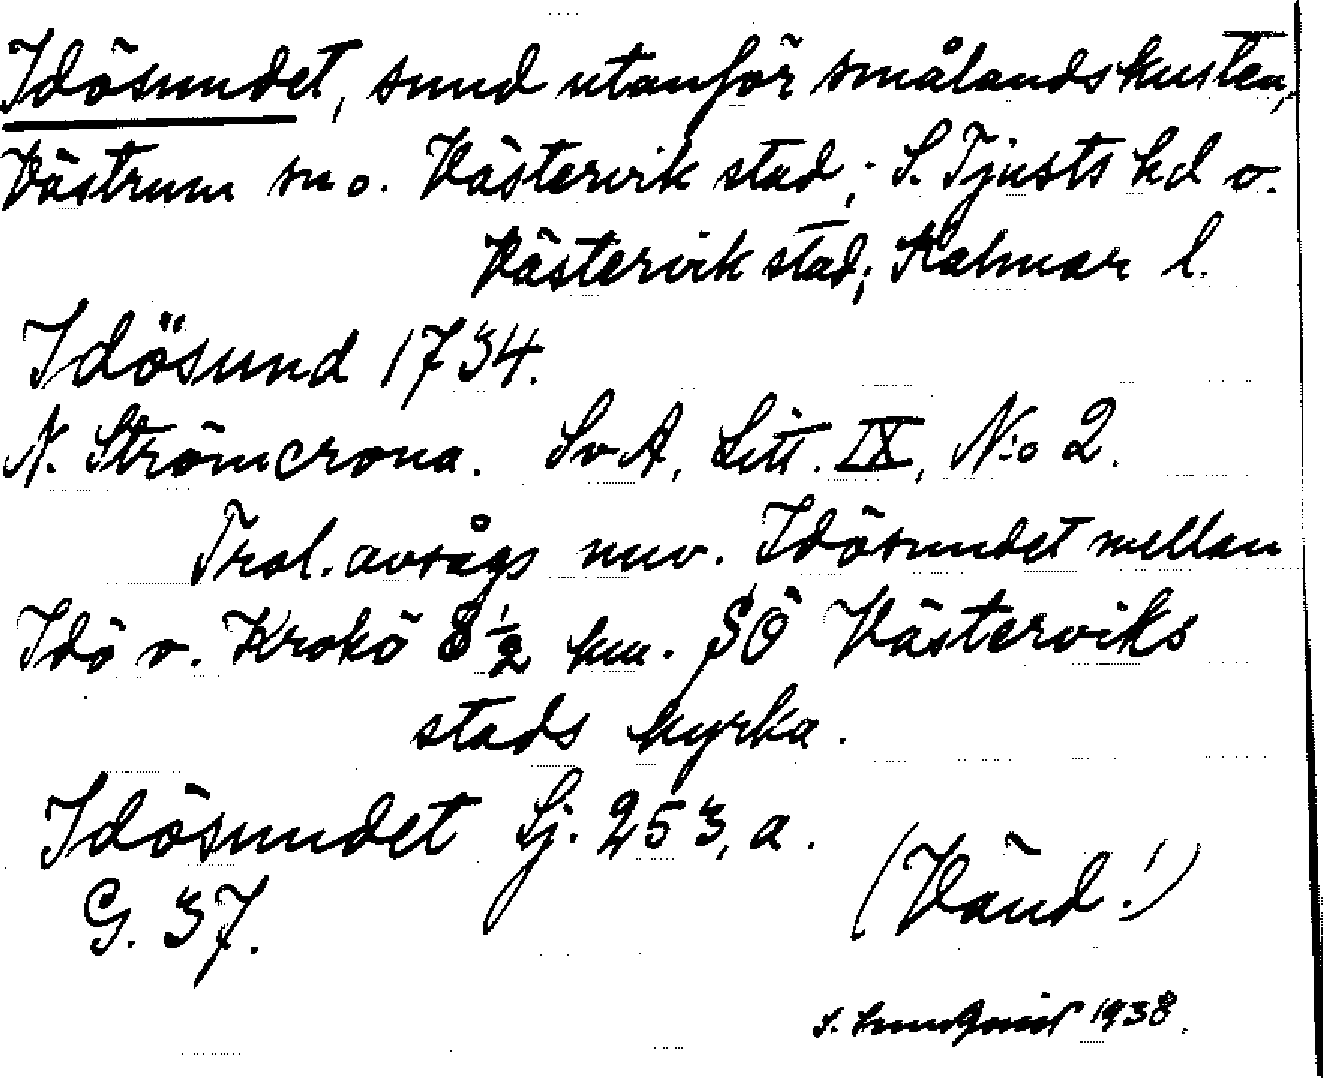 Idösundet, sund utanför smålandskusten,
Västrum sn o. Västervik stad; S. Tjusts hd o.
Västervik stad; Kalmar l.
Idösund 1734.
N. Strömcrona. SvA, Litt. IX, N:o 2.
Trol. avsågs nuv. Idösundet mellan
Idö o. Krokö 8½ km. SÖ Västerviks
stads kyrka.
Idösundet Sj. 253, a.
G. 37.
(Vänd!)
1938.